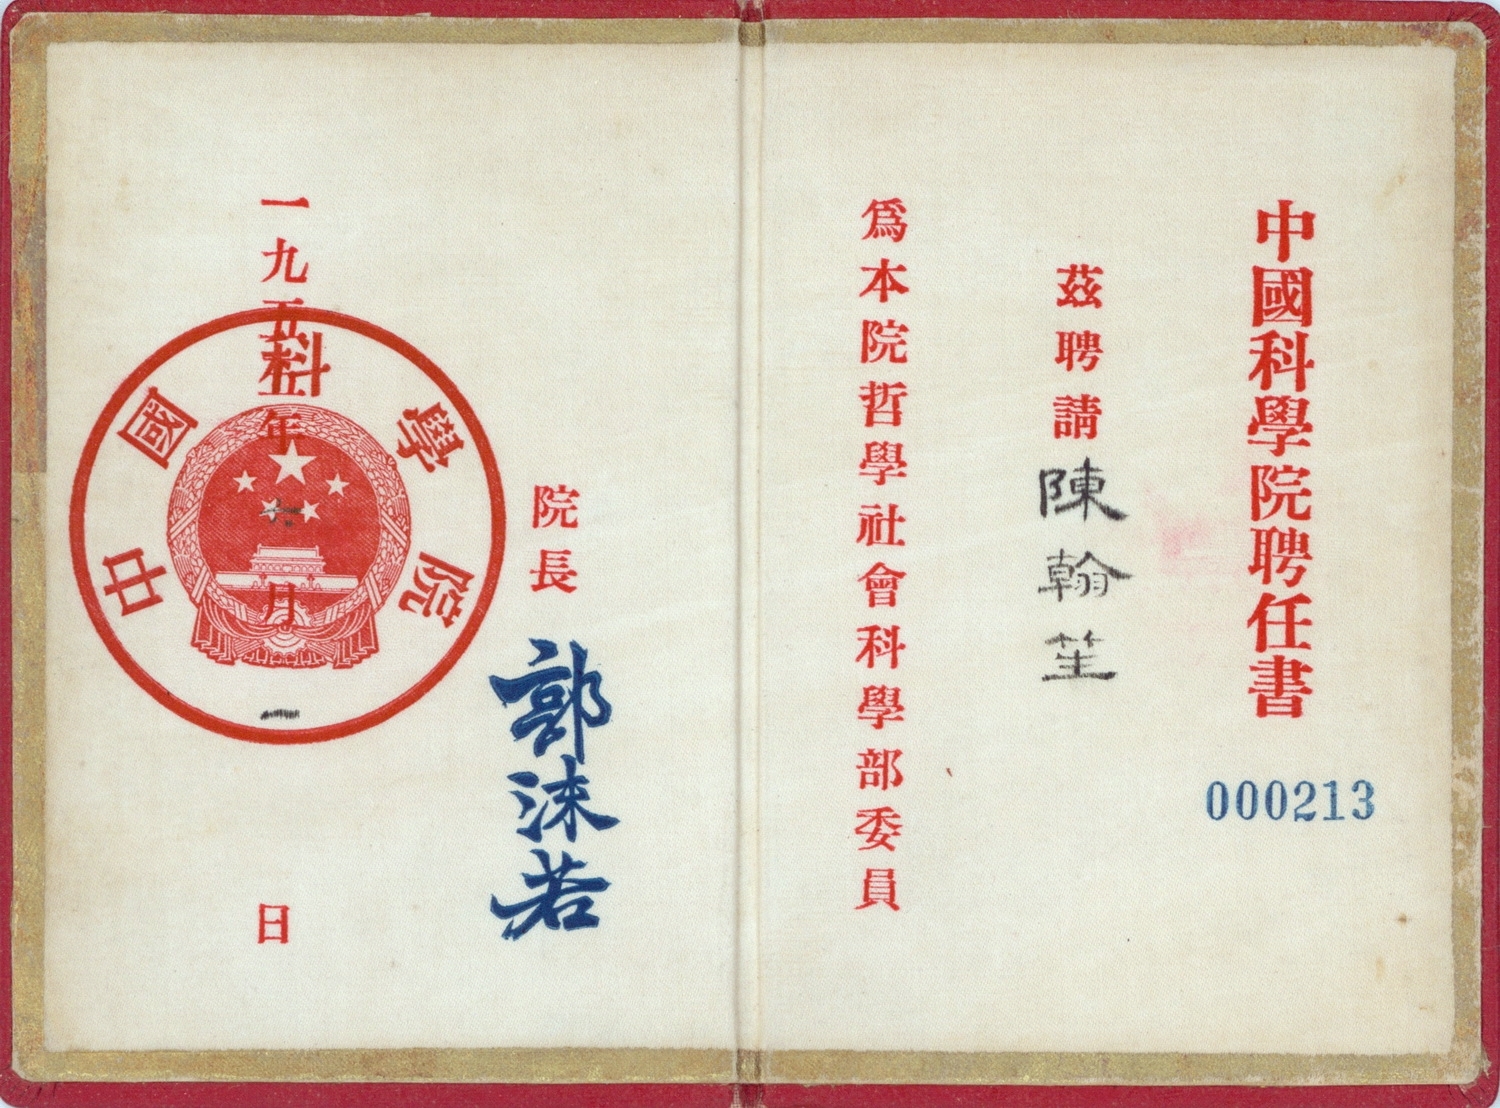 中國科學院聘任書
000213
茲聘請陳翰笙
爲本院哲學社會科學部委員
院長
郭沫若
一九五五年六月一日
中國科學院